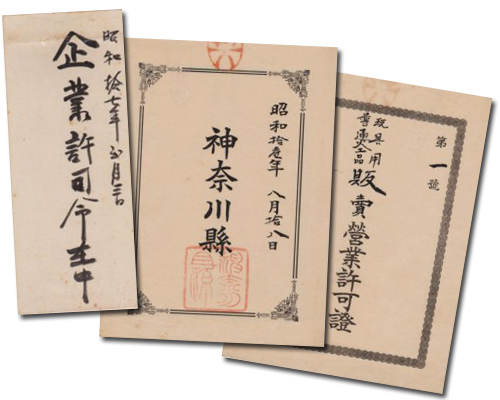 昭和拾七年 月三日
企業許可令在中
昭和拾叁年 八月拾八日
神奈川縣
第一號
玩具用
普通火工品
販賣營業許可證